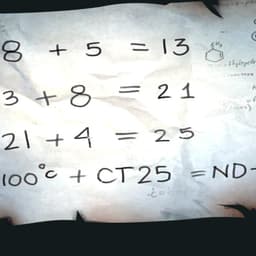 8 + 5 = 13
3 + 8 = 21
21 + 4 = 25
100°C + CT25 = ND-